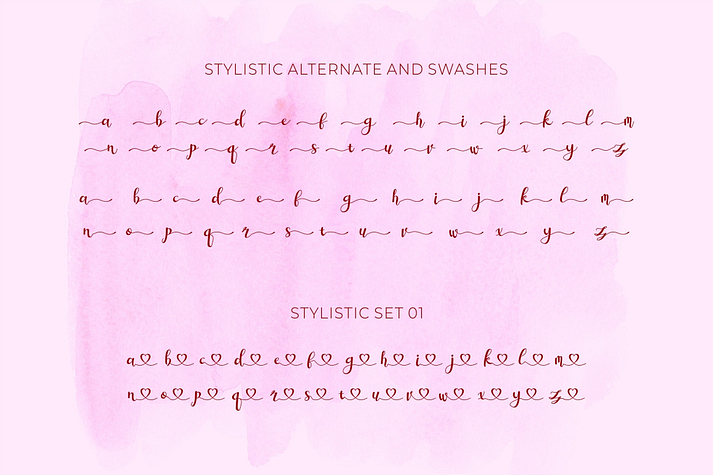 STYLISTIC ALTERNATE AND SWASHES
a b c d e f g h i j k l m
n o p q r s t u v w x y z
a b c d e f g h i j k l m
n o p q r s t u v w x y z
STYLISTIC SET 01
a b c d e f g h i j k l m
n o p q r s t u v w x y z